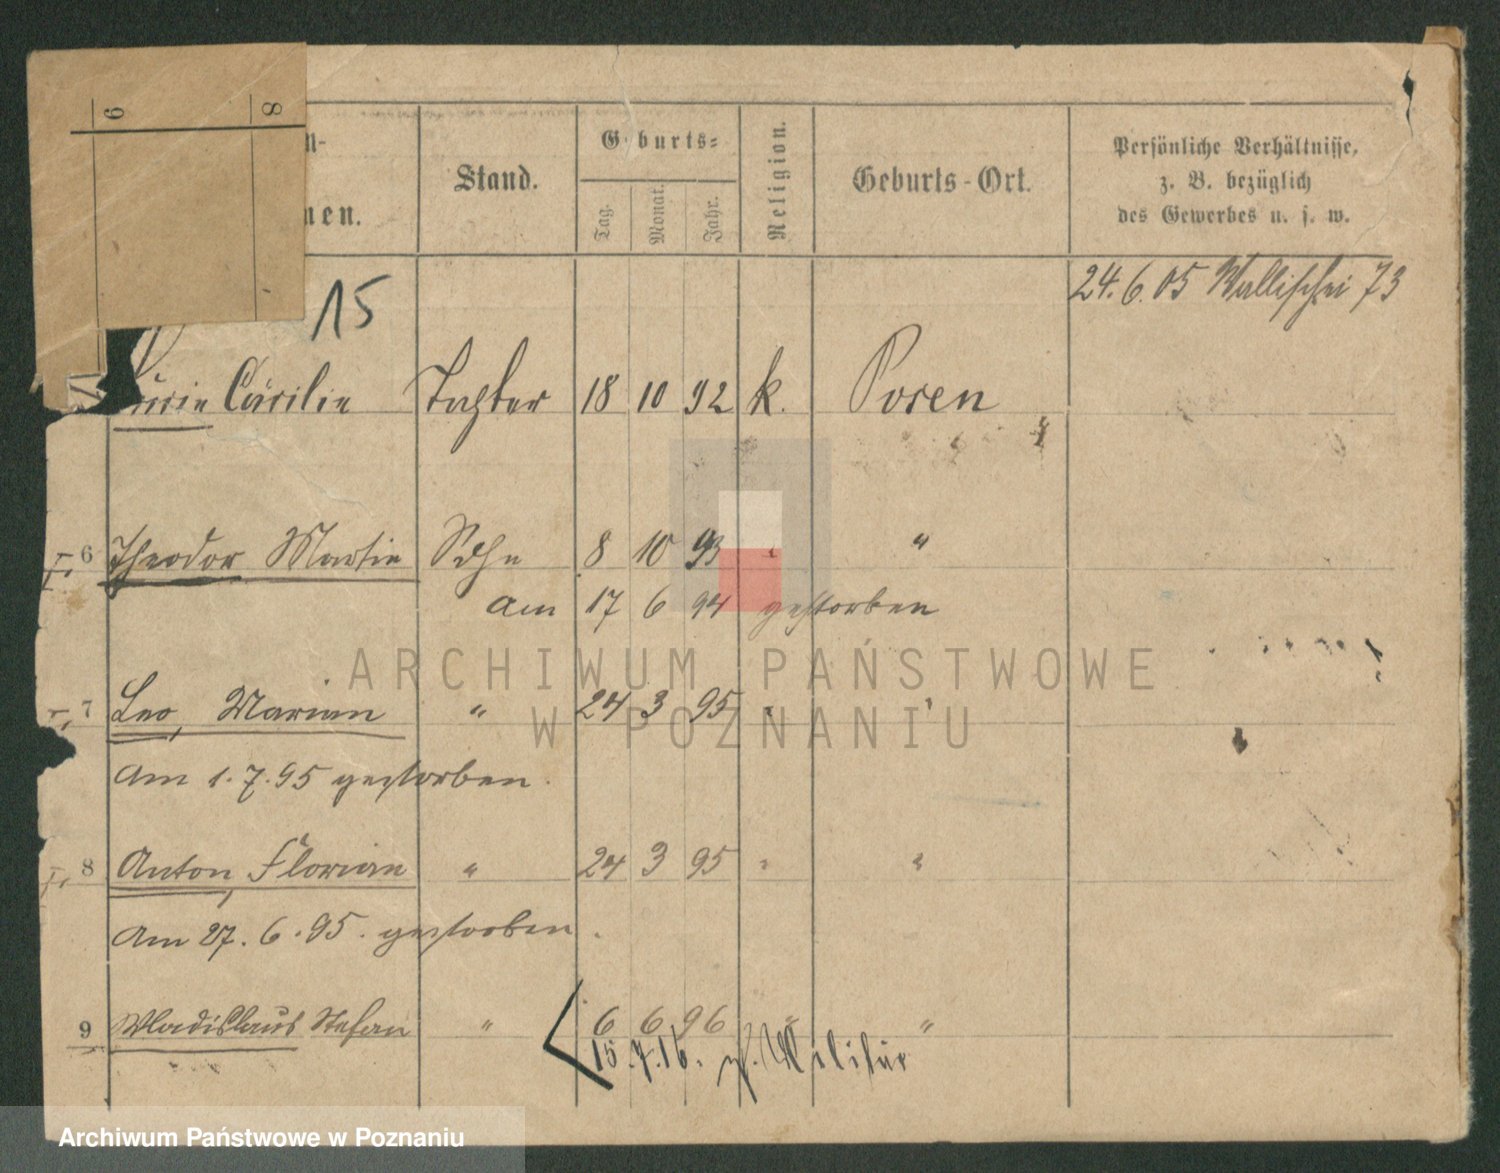 6 8
n-
Geburts=
Religion.
Persönliche Verhältnisse,
Stand.
Geburts-Ort.
z. B. bezüglich
nen.
Tag. Monat. Jahr.
des Gewerbes u. s. w.
24. 6. 05 Wallischei 73
15
Cäcilie Tochter 18 10 92 k. Posen
6 Theodor Martin Sohn 8 10 93 " "
Am 17 6 94 gestorben
ARCHIWUM PAŃSTWOWE
7 Leo, Marian " 24 3 95 " "
W POZNANIU
Am 1. 7. 95 gestorben.
8 Anton, Florian " 24 3 95 " "
Am 27. 6. 95. gestorben.
9 Wladislaus Stefan " 6 6 96 " "
15. 7. 16. z. Militär
Archiwum Państwowe w Poznaniu